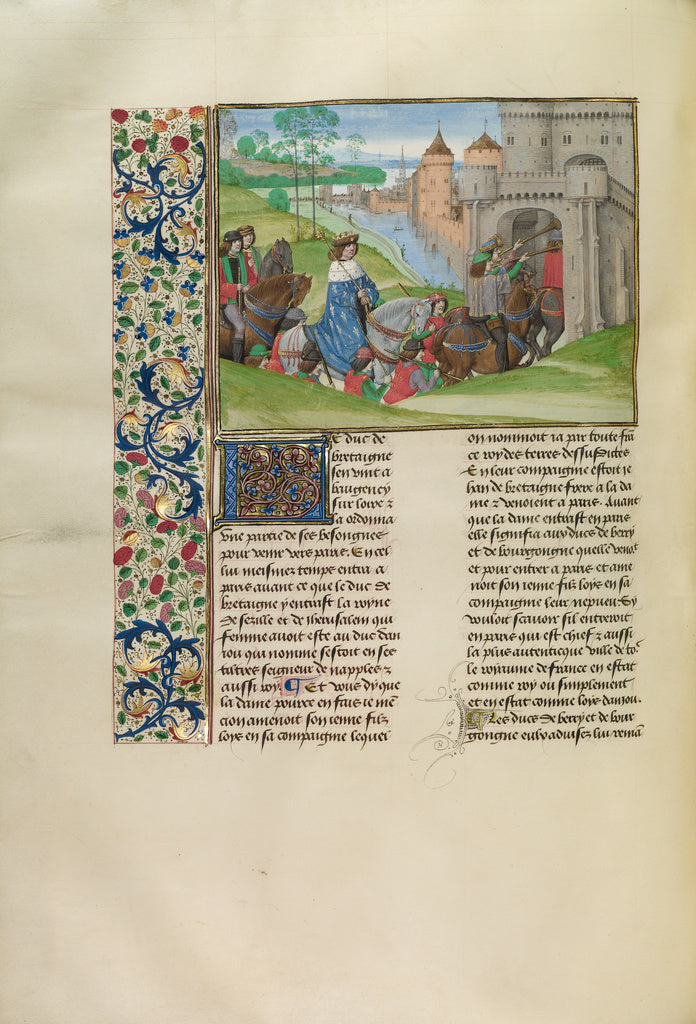 Le duc de
bretaigne
sen vint a
baugency
sur loire &
la ordonna
vne partie de ses besongnes
pour venir vers paris. En cel
lui meismez temps entra a
paris auant ce que le duc de
bretaigne y entrast la royne
de sezille et de iherusalem qui
femme auoit este au duc dan
iou qui nomme sestoit en ses
tiltres seigneur de napples &
aussi roy. Et vous dy que
la dame pource en fais ie men
cion amenoit son ienne filz
loys en sa compaignie lequel
on nommoit ia par toute fran
ce roy des terres dessusdictes
En leur compaignie estoit ie
han de bretaigne frere a la da
me & venoient a paris. Auant
que la dame entrast en paris
elle signifia aux ducs de berry
et de bourgongne quelle venoit
et pour entrer a paris et ame
noit son ienne filz loys en sa
compaignie leur nepueu. Sy
vouloit scauoir sil entreroit
en paris qui est chief & aussi
la plus autenticque ville de tout
le royaume de france en estat
comme roy ou simplement
et en estat comme loys daniou.
Les ducs de berry et de bour
gongne euly aduisez lui reman